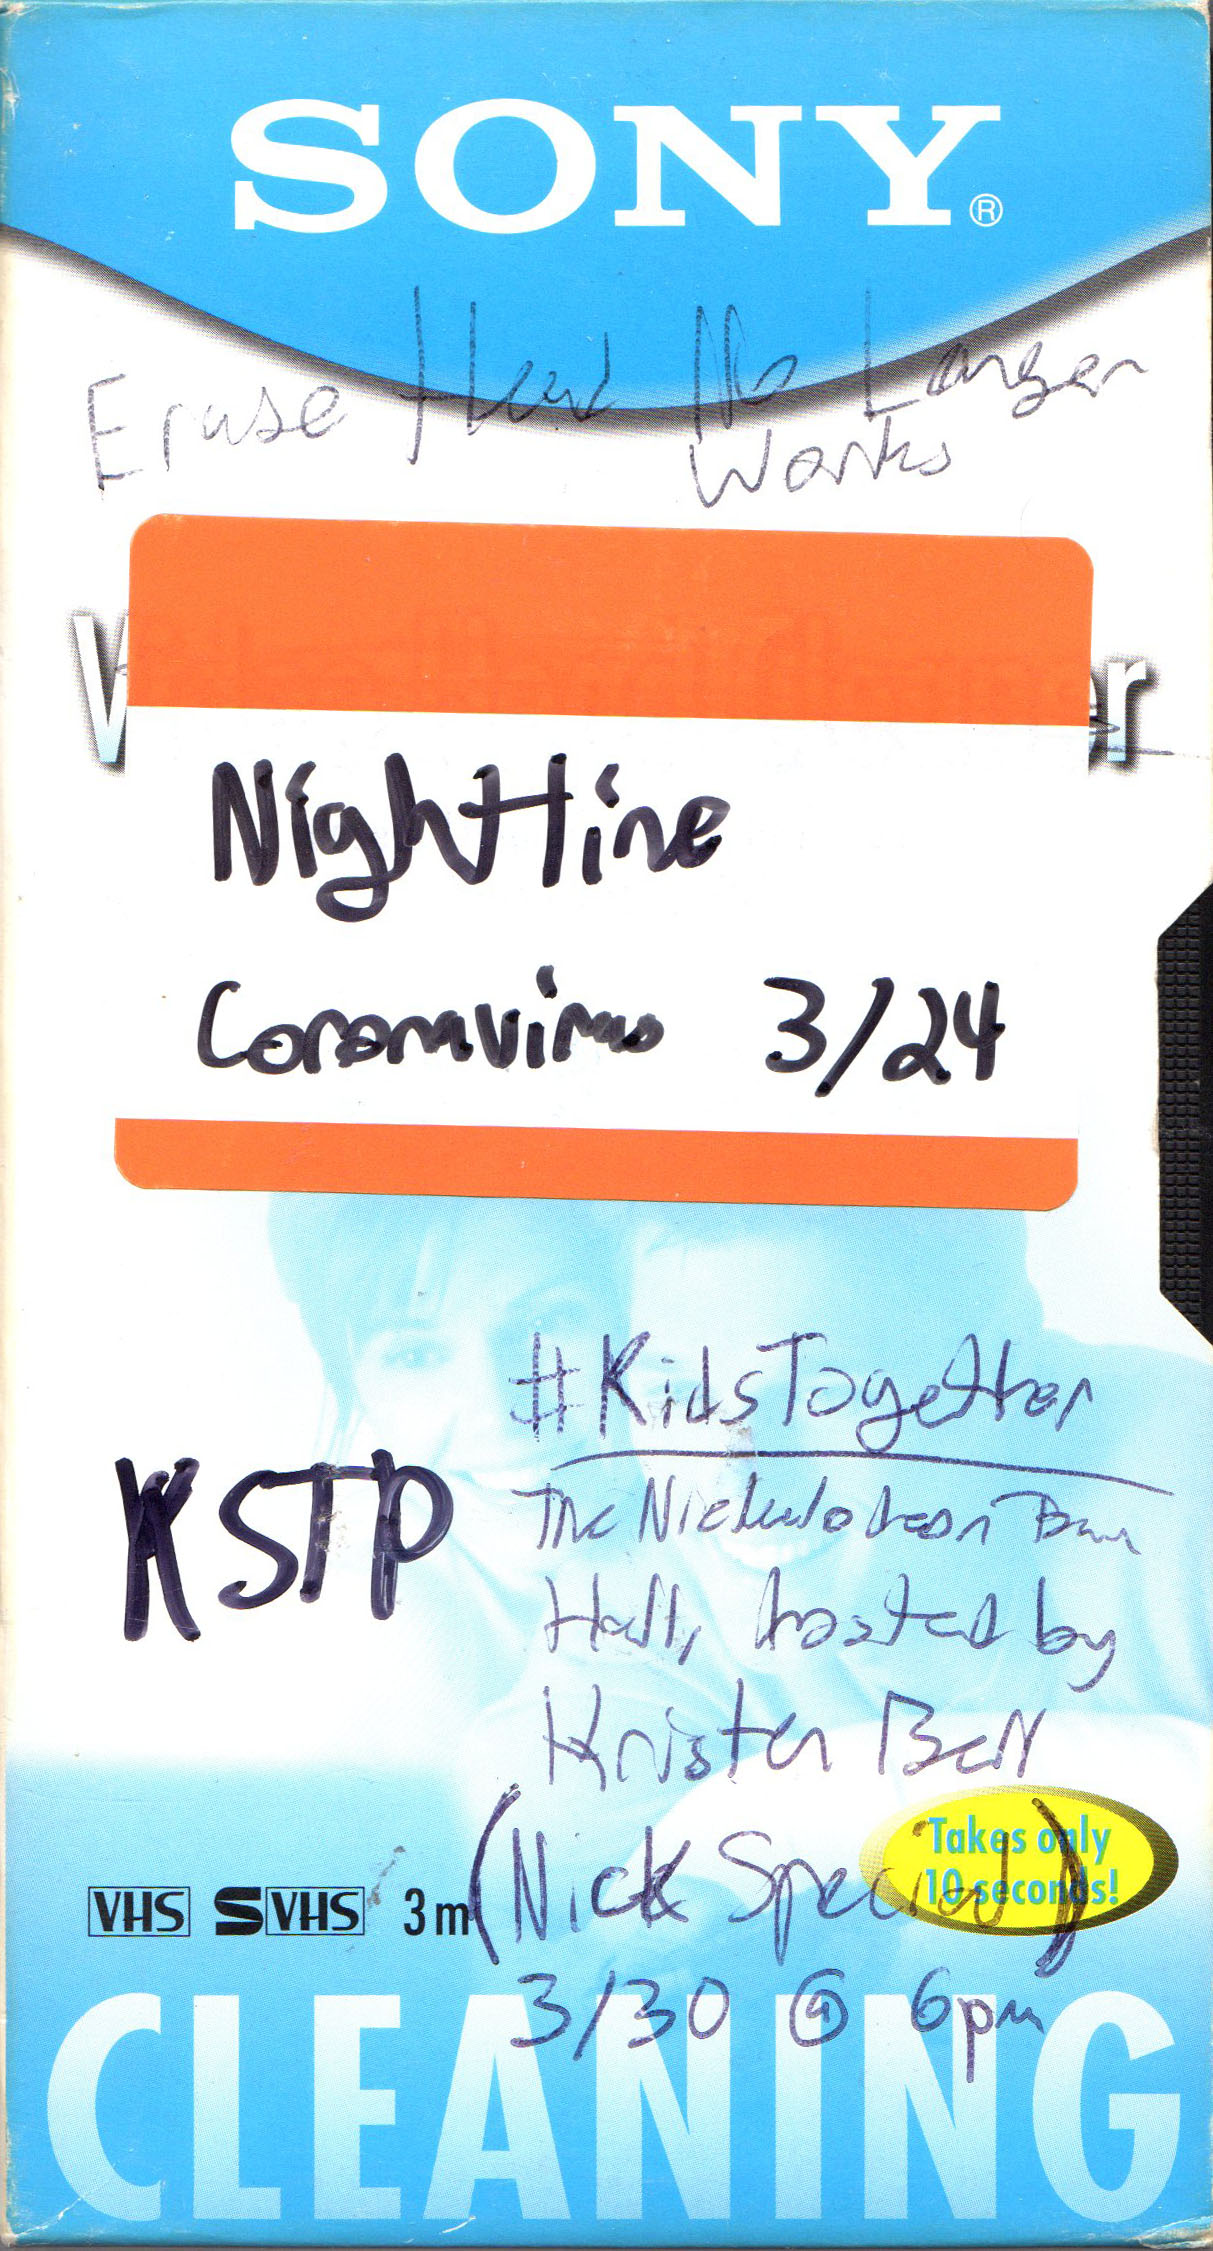 SONY®
Erase Head No Longer
Works
V er
Nightline
Coronavirus 3/24
#KidsTogether
KSTP
The Nickelodeon
Hall, hosted by
Kristen Bell
Takes only
10 seconds!
(Nick Special)
VHS SVHS 3m
3/30 @ 6pm
CLEANING